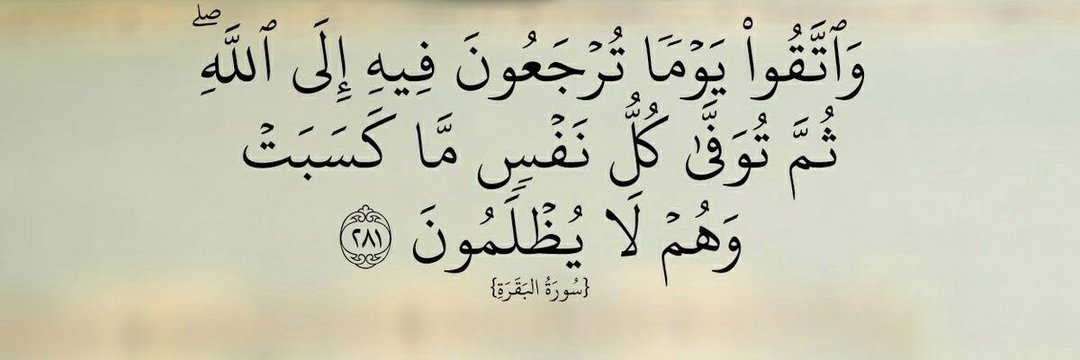 وَٱتَّقُوا۟ يَوْمًا تُرْجَعُونَ فِيهِ إِلَى ٱللَّهِ ۖ
ثُمَّ تُوَفَّىٰ كُلُّ نَفْسٍ مَّا كَسَبَتْ
وَهُمْ لَا يُظْلَمُونَ ٢٨١
{سُورَةُ البَقَرَةِ}